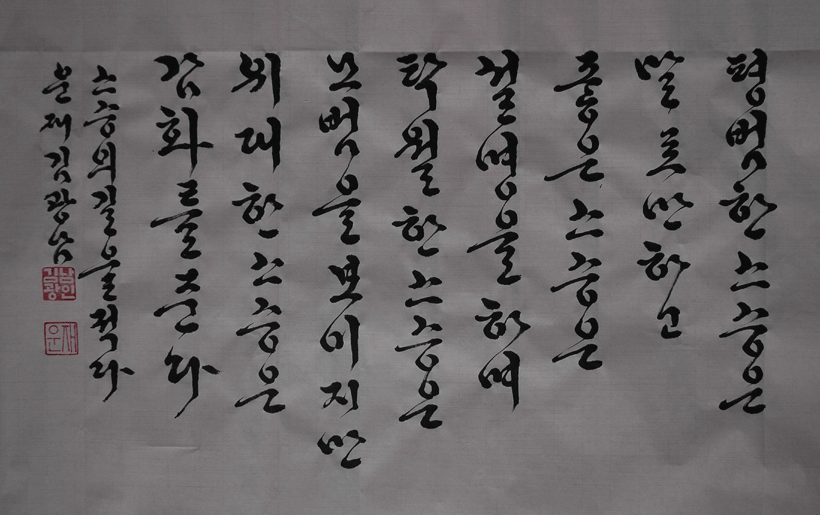 평범한 스승은
말로만 하고
좋은 스승은
설명을 하며
탁월한 스승은
모범을 보이지만
위대한 스승은
감화를 준다
스승의길을 적다
운재 김광남
김광남인
운재